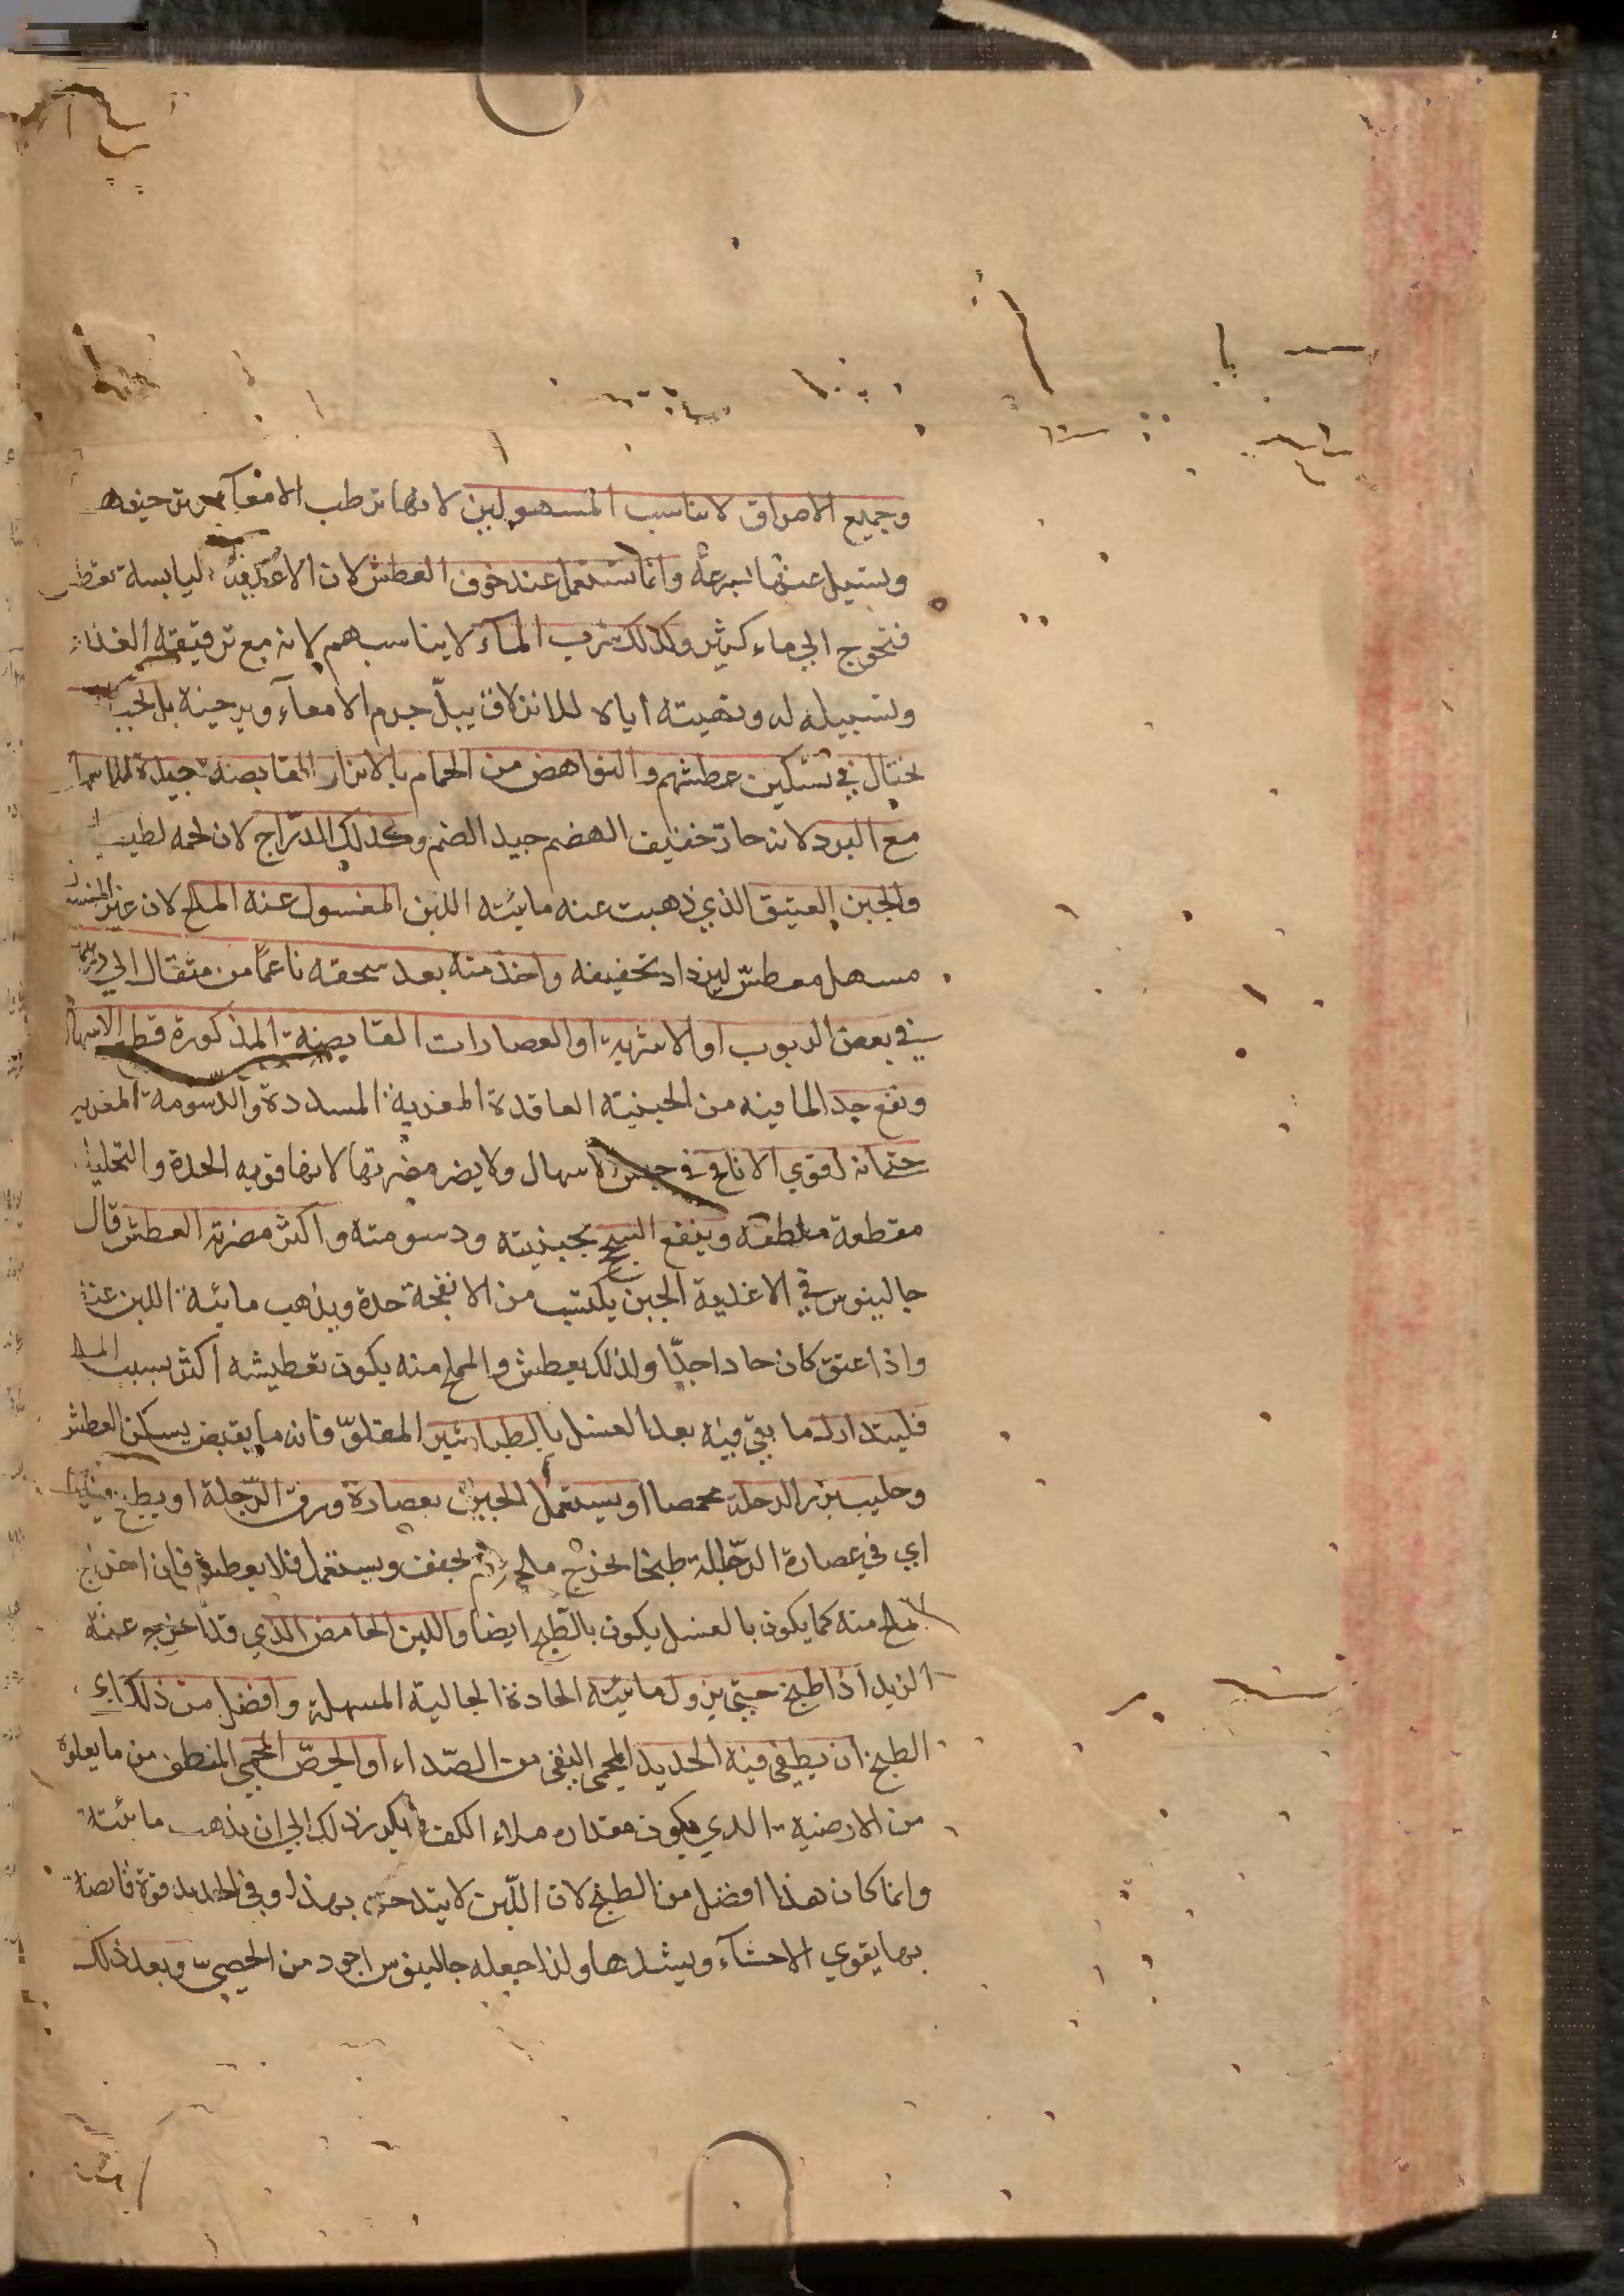 وجميع الامراق لا يناسب المسهولين لانها ترطب الامعآء وترخيها
وتسيل عنها بسرعة وانما تستعمل عند خوف العطش لان الاغذية اليابسة تعطش
فتحوج الي ماء كثير وكذلك شرب المآء لا يناسبهم لانه مع ترقيقه الغذاء
وتسييله له وتهيئته اياه للانزلاق يبلّ جرم الامعآء ويرخيه بل يجب
يحتال في تسكين عطشهم والنواهض من الحمام بالابزار القابضة جيدة للاسهال
مع البرد لانه حارّ خفيف الهضم جيد الضم وكذلك الدّراج لان لحمه لطيف
والجبن العتيق الذي ذهبت عنه مائيته اللبن المغسول عنه الملح لان غير المغسول
مسهل معطش ليزداد تجفيفه واخذ منه بعد سحقه ناعمًا من مثقال الي درهمين
في بعض الربوب او الاشربة او العصارات القابضة المذكورة قطع الاسهال
ونفع جدا لما فيه من الجبنية العاقدة المغرية المسددة والدسومة المغرية
حتي انه اقوي الانافح في حبس الاسهال ولا يضر مضرتها لانها قوية الحدة والتحليل
مقطعة ملطفة وينفع السحج بجبنيته ودسومته واكثر مضرته العطش قال
جالينوس في الاغذية الجبن يكتسب من الانفحة حدة ويذهب مائية اللبن عنه
واذا عتق كان حادا جدّا ولذلك يعطش والمملح منه يكون تعطيشه اكثر بسبب الملح
فليتدارك ما بقي فيه بعد الغسل بالطباشير المقلوّ فانه ما يقبض يسكن العطش
وحليب بزر الرجلة محمصا او يستعمل الجبن بعصارة ورق الرّجلة او يطبخ فيها
اي في عصارة الرّجلة طبخا يخرج ملحه ثم يجفف ويستعمل فلا يعطش فان اخراج
الملح منه كما يكون بالغسل يكون بالطبخ ايضا واللبن الحامض الذي قد اخرج عنه
الزبد اذا طبخ حتي يزول مائيته الحادة الجالية المسهلة وافضل من ذلك اي
الطبخ ان يطفى فيه الحديد المحمى النقي من الصّداء او الحصّ المحمي المنظف من ما يعلوه
من الارضية الذي يكون مقداره ملاء الكف يكرر ذلك الي ان يذهب مائيته
وانما كان هذا افضل من الطبخ لان اللّبن لا يتدخن بهذا وفي الحديد قوة قابضة
بها يقوي الاحشآء ويشدها ولذا جعله جالينوس اجود من الحصي وبعد ذلك